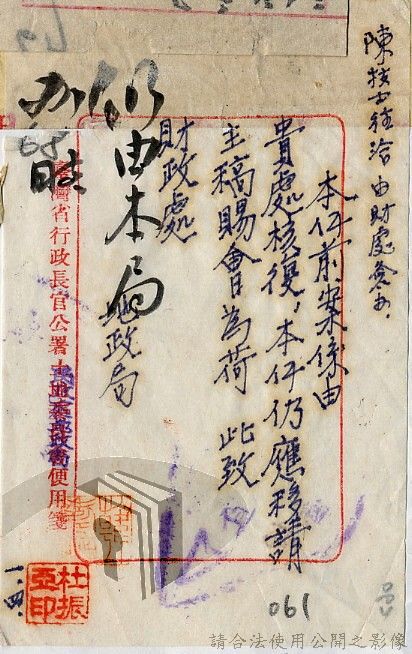 陳技士往洽由財處參加.
本件前案係由
貴處核復,本件仍應移請
主稿賜會為荷 此致
財政處
地政局
仍由本局
辦
臺灣省行政長官公署土地委員會使用箋
杜振亞印
一.四.
061
請合法使用公開之影像